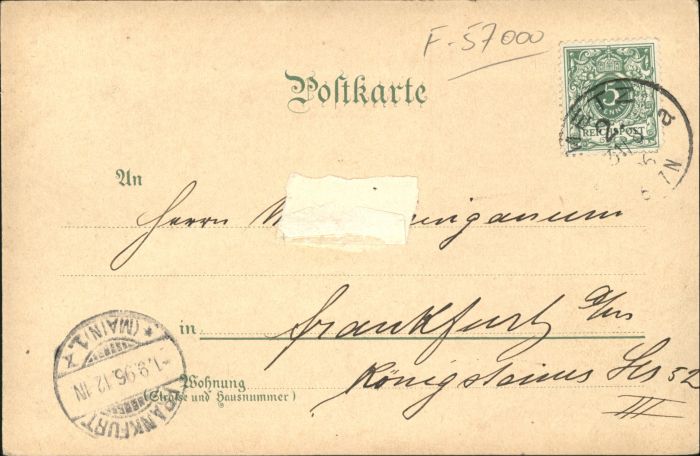 F-57000
Postkarte
5
REICHSPOST
An
Herrn
in Frankfurt a/m
Wohnung
(Straße und Hausnummer)
Königsteiner Str 52
III
FRANKFURT
* (MAIN) 1. *
1.8.96.12-1N